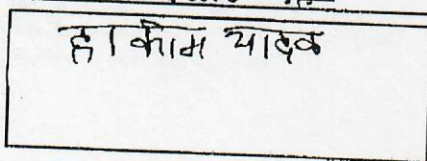 हाकीम यादव